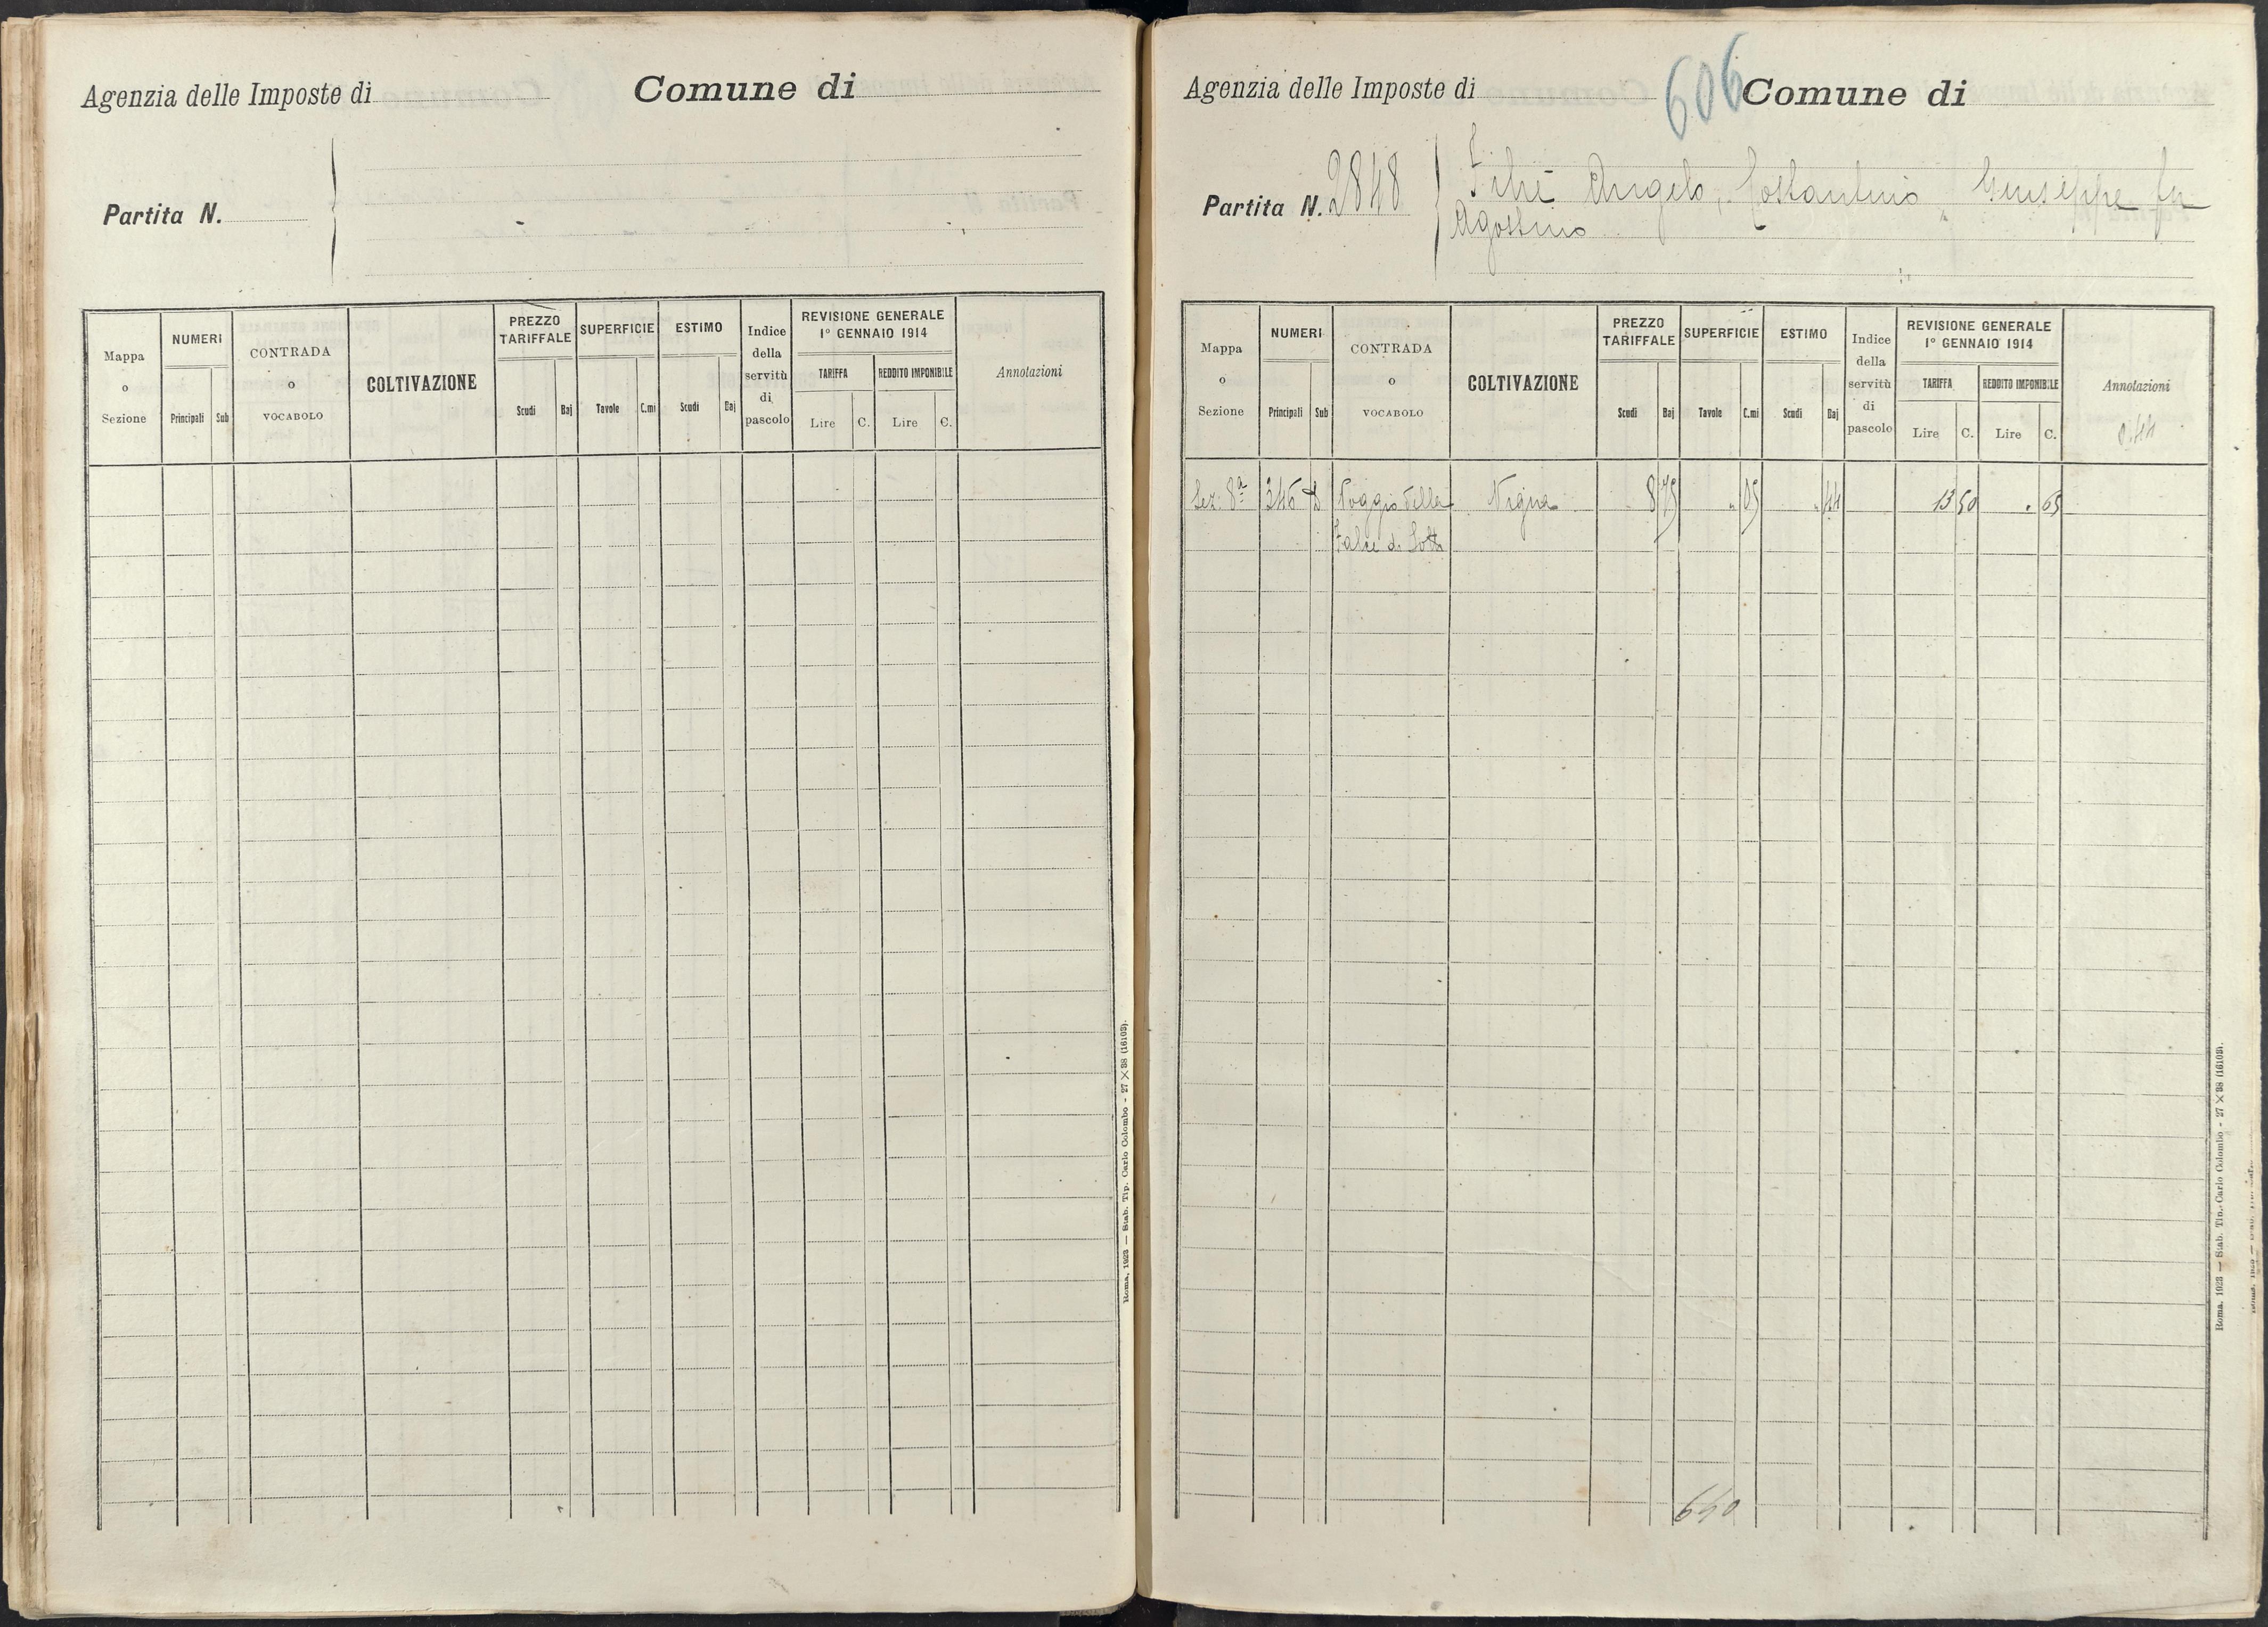 Agenzia delle Imposte di Comune di
Partita N.
Mappa o Sezione
NUMERI
Principali Sub
CONTRADA o VOCABOLO
COLTIVAZIONE
PREZZO TARIFFALE
Scudi Baj
SUPERFICIE
Tavole C.mi
ESTIMO
Scudi Baj
Indice della servitù di pascolo
REVISIONE GENERALE
1° GENNAIO 1914
TARIFFA REDDITO IMPONIBILE
Lire C. Lire C.
Annotazioni
Roma, 1923 — Stab. Tip. Carlo Colombo - 27 × 38 (16103).
606
Agenzia delle Imposte di Comune di
Partita N. 2848
Angelo, Costantino, Giuseppe fu
Agostino
Mappa o Sezione
NUMERI
Principali Sub
CONTRADA o VOCABOLO
COLTIVAZIONE
PREZZO TARIFFALE
Scudi Baj
SUPERFICIE
Tavole C.mi
ESTIMO
Scudi Baj
Indice della servitù di pascolo
REVISIONE GENERALE
1° GENNAIO 1914
TARIFFA REDDITO IMPONIBILE
Lire C. Lire C.
Annotazioni
0.44
Sez. 8ª 346 Poggio della Vigna 8 75 " 05 " 44 13 50 " 65
Falce di Sotto
640
Roma, 1923 — Stab. Tip. Carlo Colombo - 27 × 38 (16103).